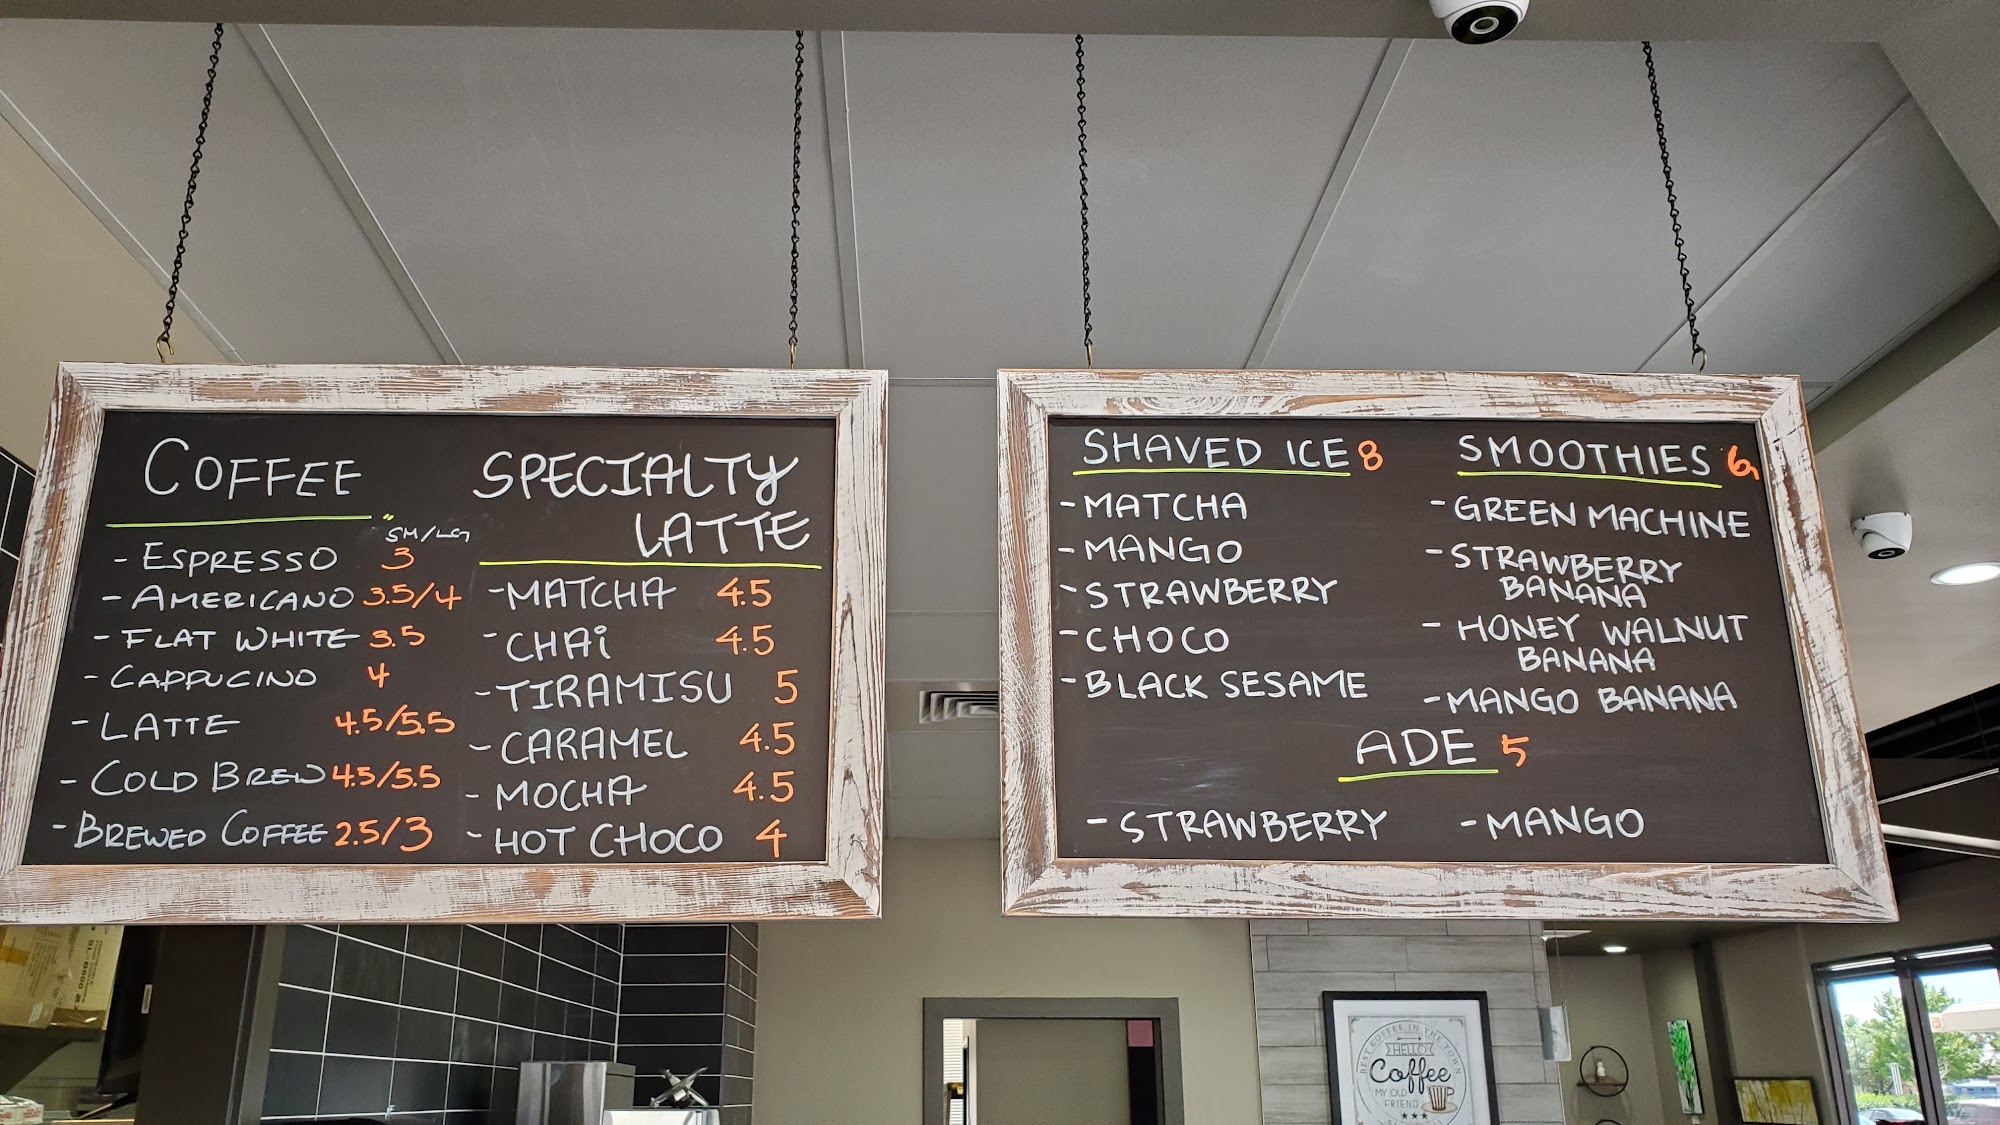 COFFEE
SM/LG
- ESPRESSO 3
- AMERICANO 3.5/4
- FLAT WHITE 3.5
- CAPPUCINO 4
- LATTE 4.5/5.5
- COLD BREW 4.5/5.5
- BREWED COFFEE 2.5/3
SPECIALTY
LATTE
- MATCHA 4.5
- CHAi 4.5
- TIRAMISU 5
- CARAMEL 4.5
- MOCHA 4.5
- HOT CHOCO 4
SHAVED ICE 8
- MATCHA
- MANGO
- STRAWBERRY
- CHOCO
- BLACK SESAME
SMOOTHIES 6
- GREEN MACHINE
- STRAWBERRY
BANANA
- HONEY WALNUT
BANANA
- MANGO BANANA
ADE 5
- STRAWBERRY - MANGO
BEST COFFEE IN THE TOWN
HELLO
Coffee
MY OLD
FRIEND